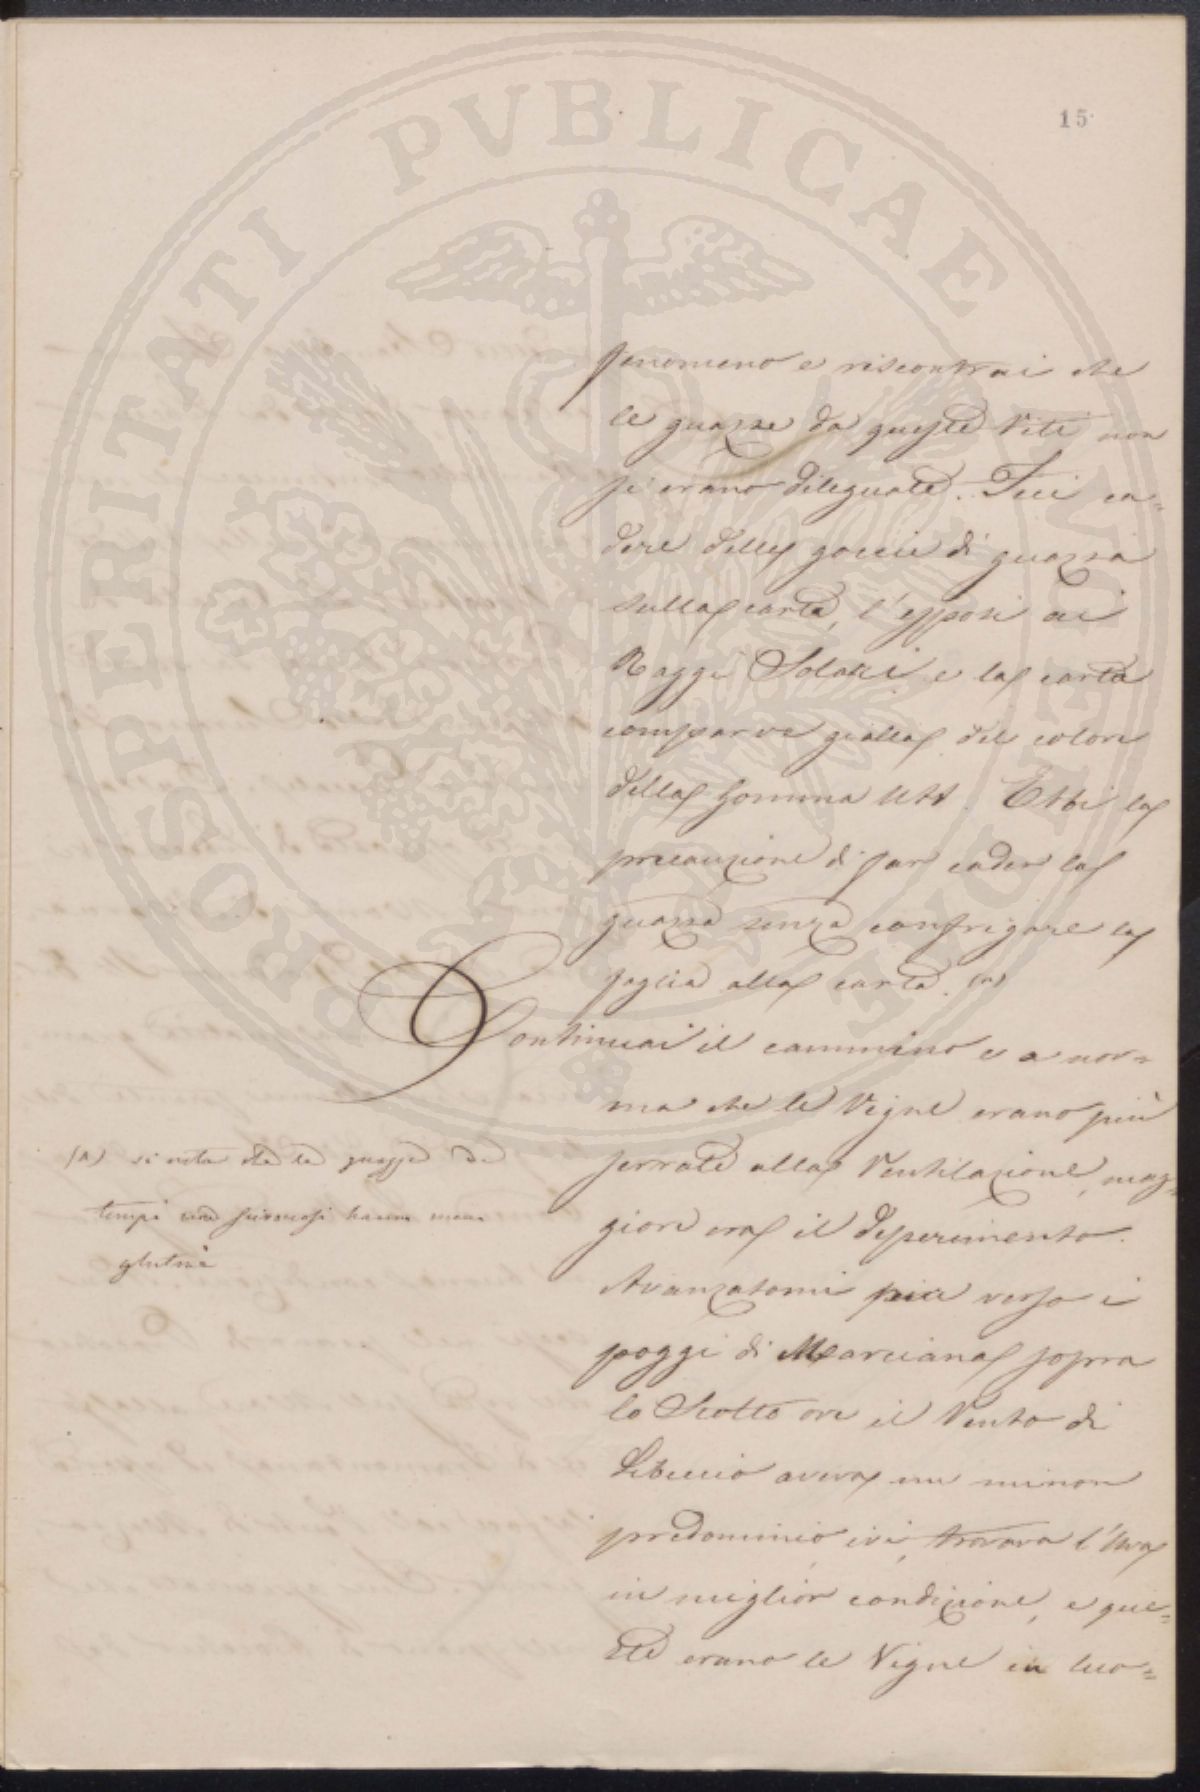 15
fenomeno e riscontrai che
le guazze da queste Viti non
si erano dileguate. Feci ca=
dere delle goccie di guazza
sulla carta, l'esposi ai
Raggi Solari e la carta
comparve gialla del colore
della Gomma Utt. Ebbi la
precauzione di far cader la
guazza senza confrigare la
foglia alla carta. (a)
Continuai il cammino e a nor=
ma che le Vigne erano più
serrate alla Ventilazione, mag=
giore era il deperimento.
Avanzatomi più verso i
poggi di Marciana sopra
lo Scotto ove il Vento di
Libeccio aveva un minor
predominio ivi, trovava l'Uva
in miglior condizione, e que=
ste erano le Vigne in luo=
(A) si nota che le guazze de
tempi non sciroccosi hanno meno
glutine
PROSPERITATI PVBLICAE